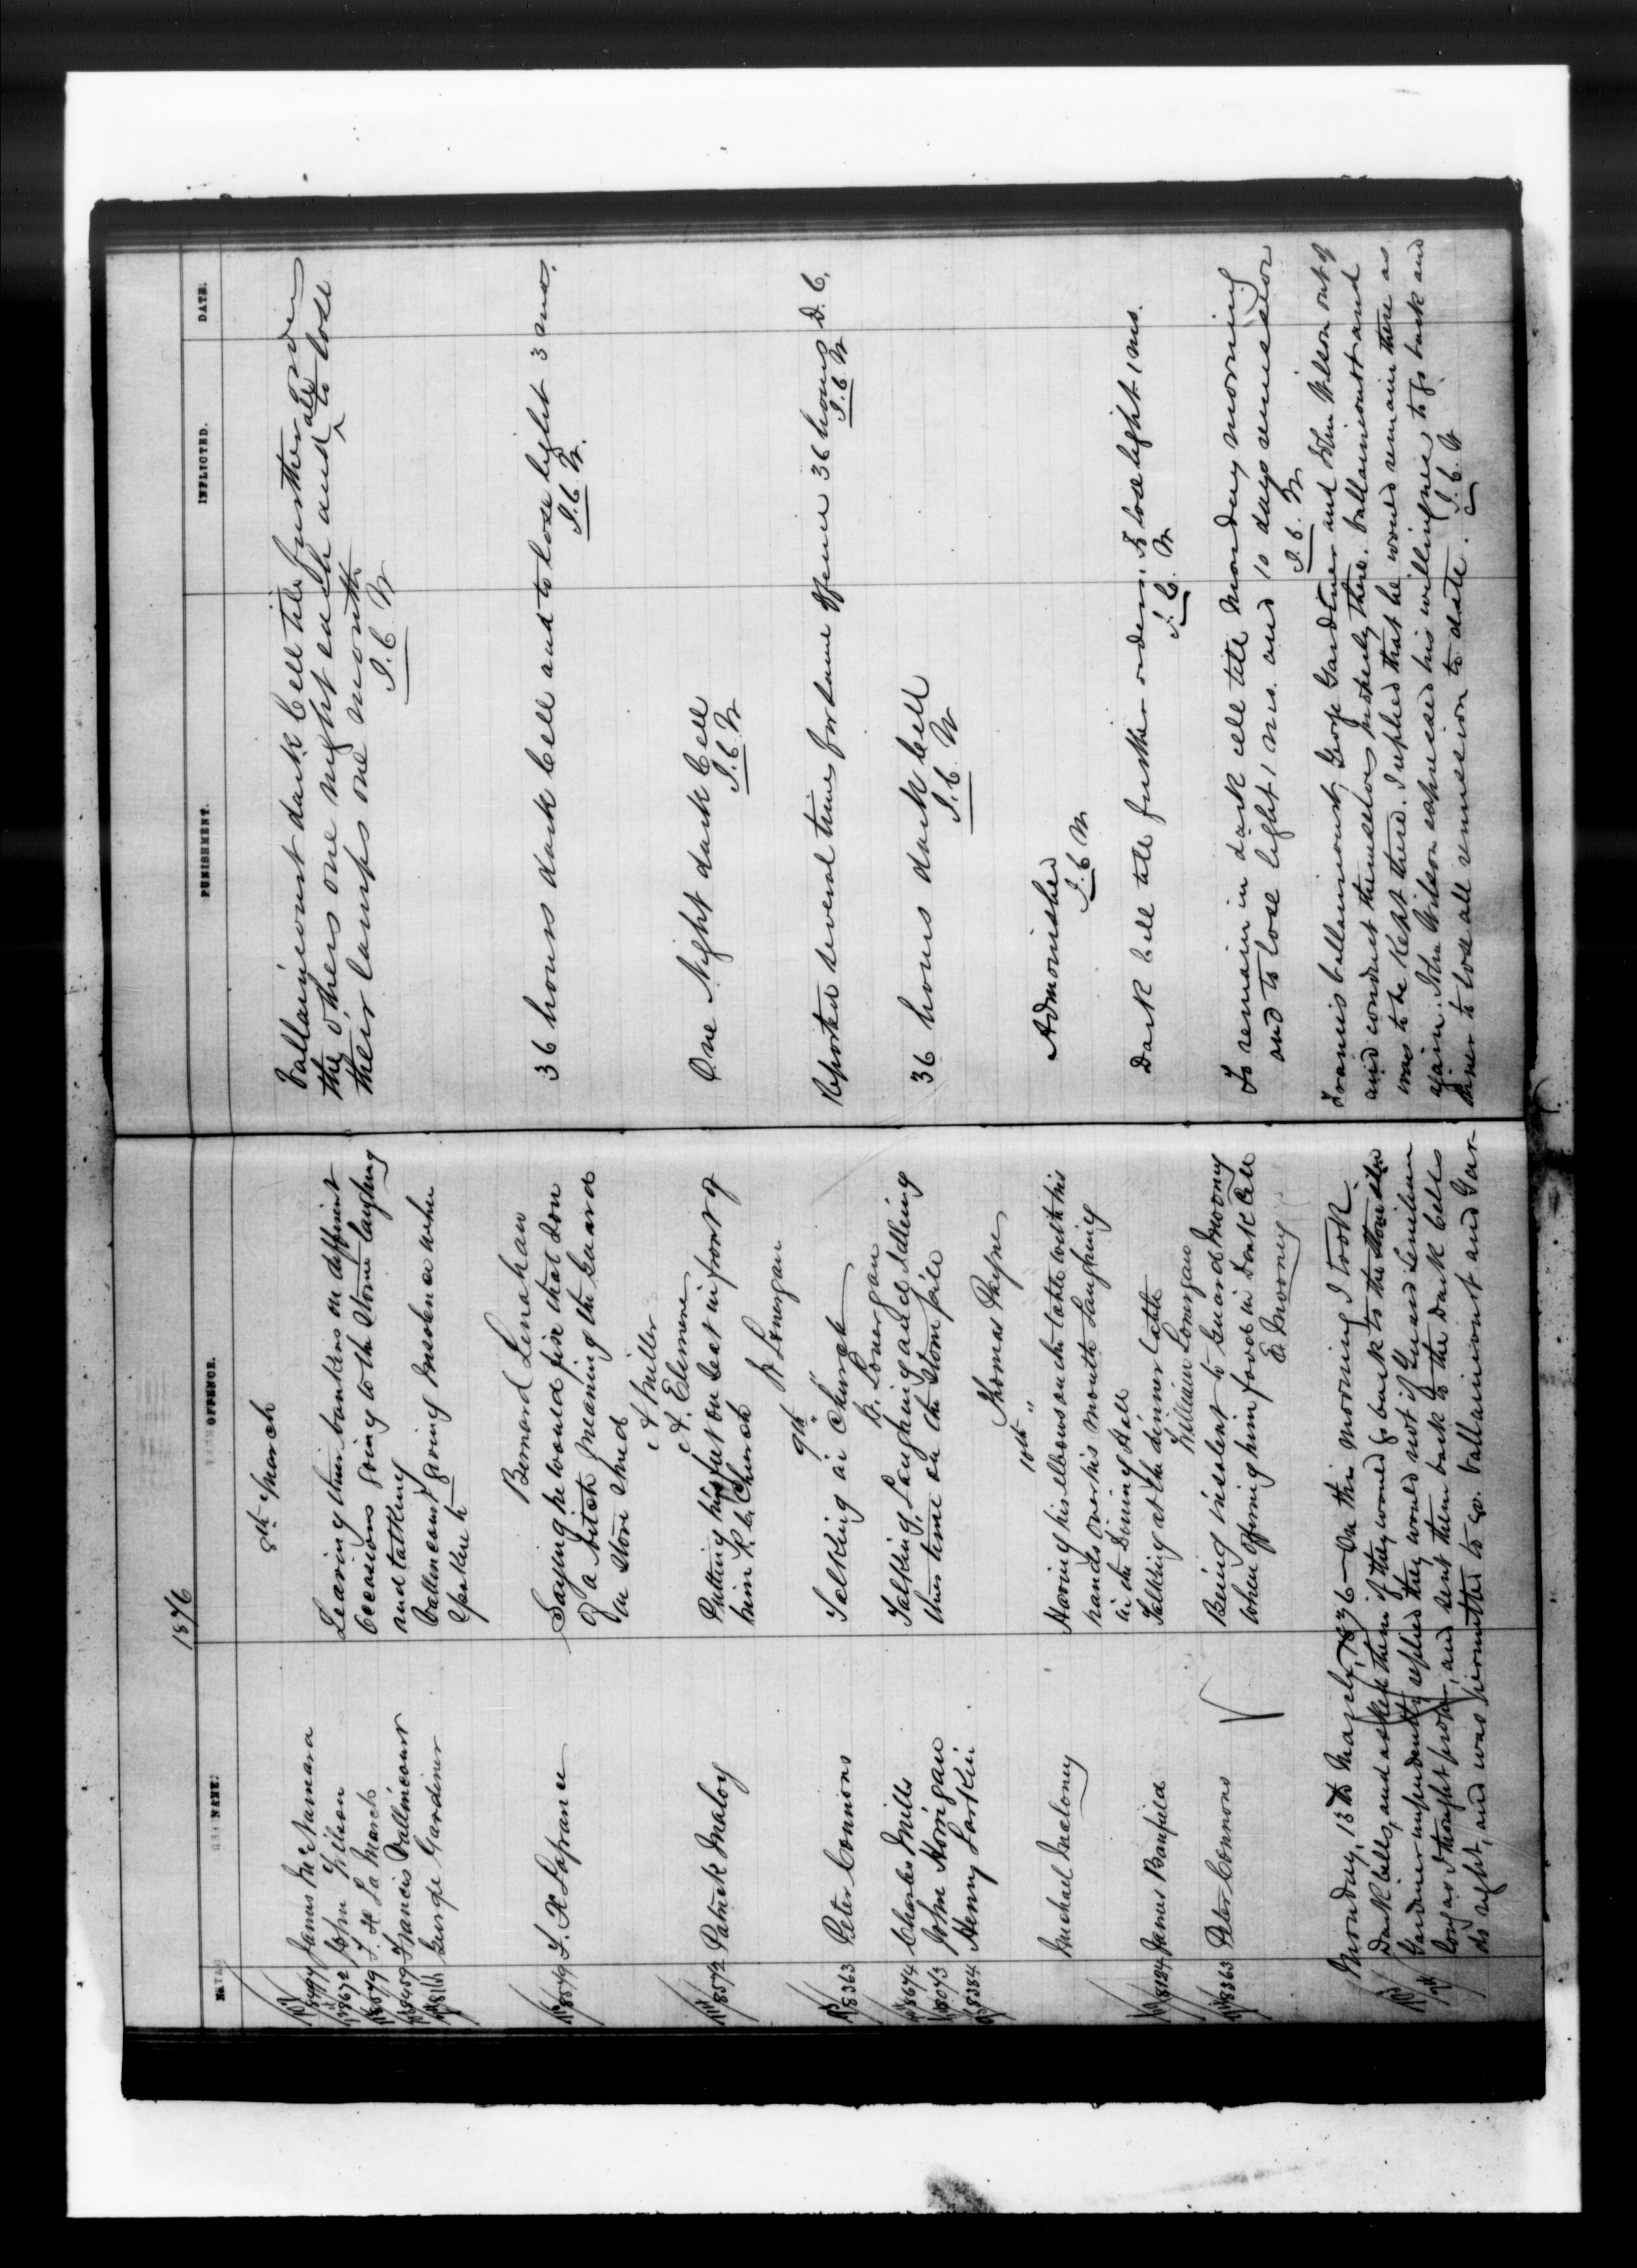 1876
NAME.
OFFENCE.
PUNISHMENT.
INFLICTED.
DATE.
8th March
8494 James McNamara
8672 John Wilson
8579 F. X. La March
8459 Francis Vallincour
8161 George Gardiner
Leaving their bankers on different
occasions going to the Stone laughing
and talking
Vallincourt giving insolence when
spoken to
Bernard Lenahan
Vallaincourt dark Cell till further orders
the others one night each and all to lose
their lamps one month
J. C. M
8579 F. X Lafrance
Saying he would fix that Son
of a bitch meaning the Guard
in Stone Shed
A Miller
A. Elmere
36 hours dark Cell and to lose light 3 mos.
J. C. M.
8572 Patrick Maloy
Putting his feet on Seat in front of
him R. C. Church
W Lonergan
One Night dark Cell
J. C. M
9th "
8363 Peter Connors
Talking in Church
W. Lonergan
Reported several times for same offence 36 hours D. C.
J. C. M
8674 Charles Mills
8073 John Horrigan
8384 Henry Larkin
Talking, Laughing and Idleing
their time on the Stone pile
Thomas Payne
36 hours dark Cell
J. C. M
10th "
Michael Maloney
Having his elbows on the table with his
hands over his mouth Laughing
in the Dining Hall
Admonished
J. C. M
8124 James Banfield
Talking at the dinner table
William Lonergan
Dark Cell till further orders. To lose light 1 mo.
J. C. M
8363 Peter Connors
Being insolent to Guard Mooney
when offering him food in Dark Cell
E. Mooney
To remain in dark cell till Monday morning
and to lose light 1 mo. and 10 days remission
J. C. M
Monday, 13th March, 1876 — On this morning I took
Francis Vallaincourt, George Gardiner and John Wilson out of
Dark Cells, and asked them if they would go back to the Stone Shed
and conduct themselves properly there. Vallaincourt and
Gardiner impudently replied they would not if Guard Lenihan
was to be kept there. I replied that he would remain there as
long as I thought proper, and sent them back to the dark Cells
again. John Wilson expressed his willingness to go back and
do right, and was permitted to go. Vallaincourt and Gar-
diner to lose all remission to date.
J. C. M